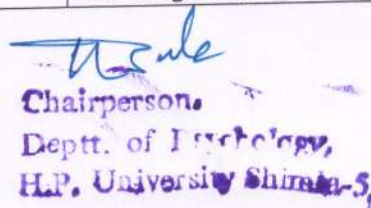 Chairperson.
Deptt. of Psychology,
H.P. University Shimla-5,